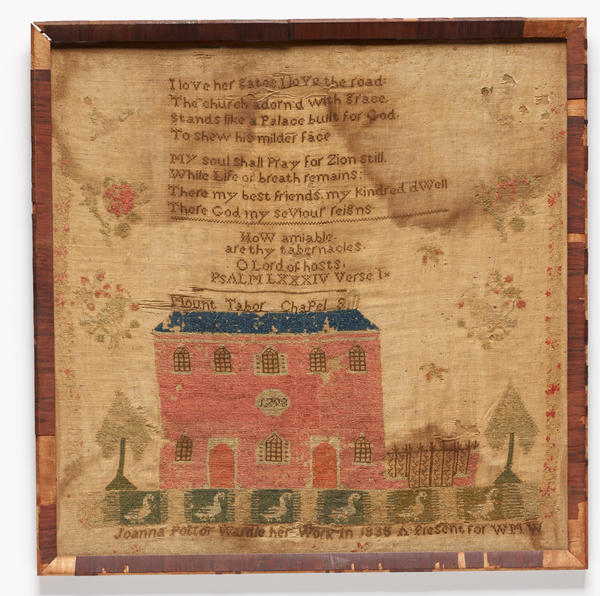 I love her gates I love the road:
The church adorn'd with grace.
Stands like a Palace built for God.
To shew his milder face
My soul shall Pray for Zion still.
While Life or breath remains:
There my best friends. my kindred dwell
There God my seViour reigns
HoW amiable.
are thy tabernacles.
O Lord of hosts.
PSALM LXXXIV Verse 1
Mount Tabor Chapel
1798
Joanna Potter Wardle her Work in 1838 A Present for W M W